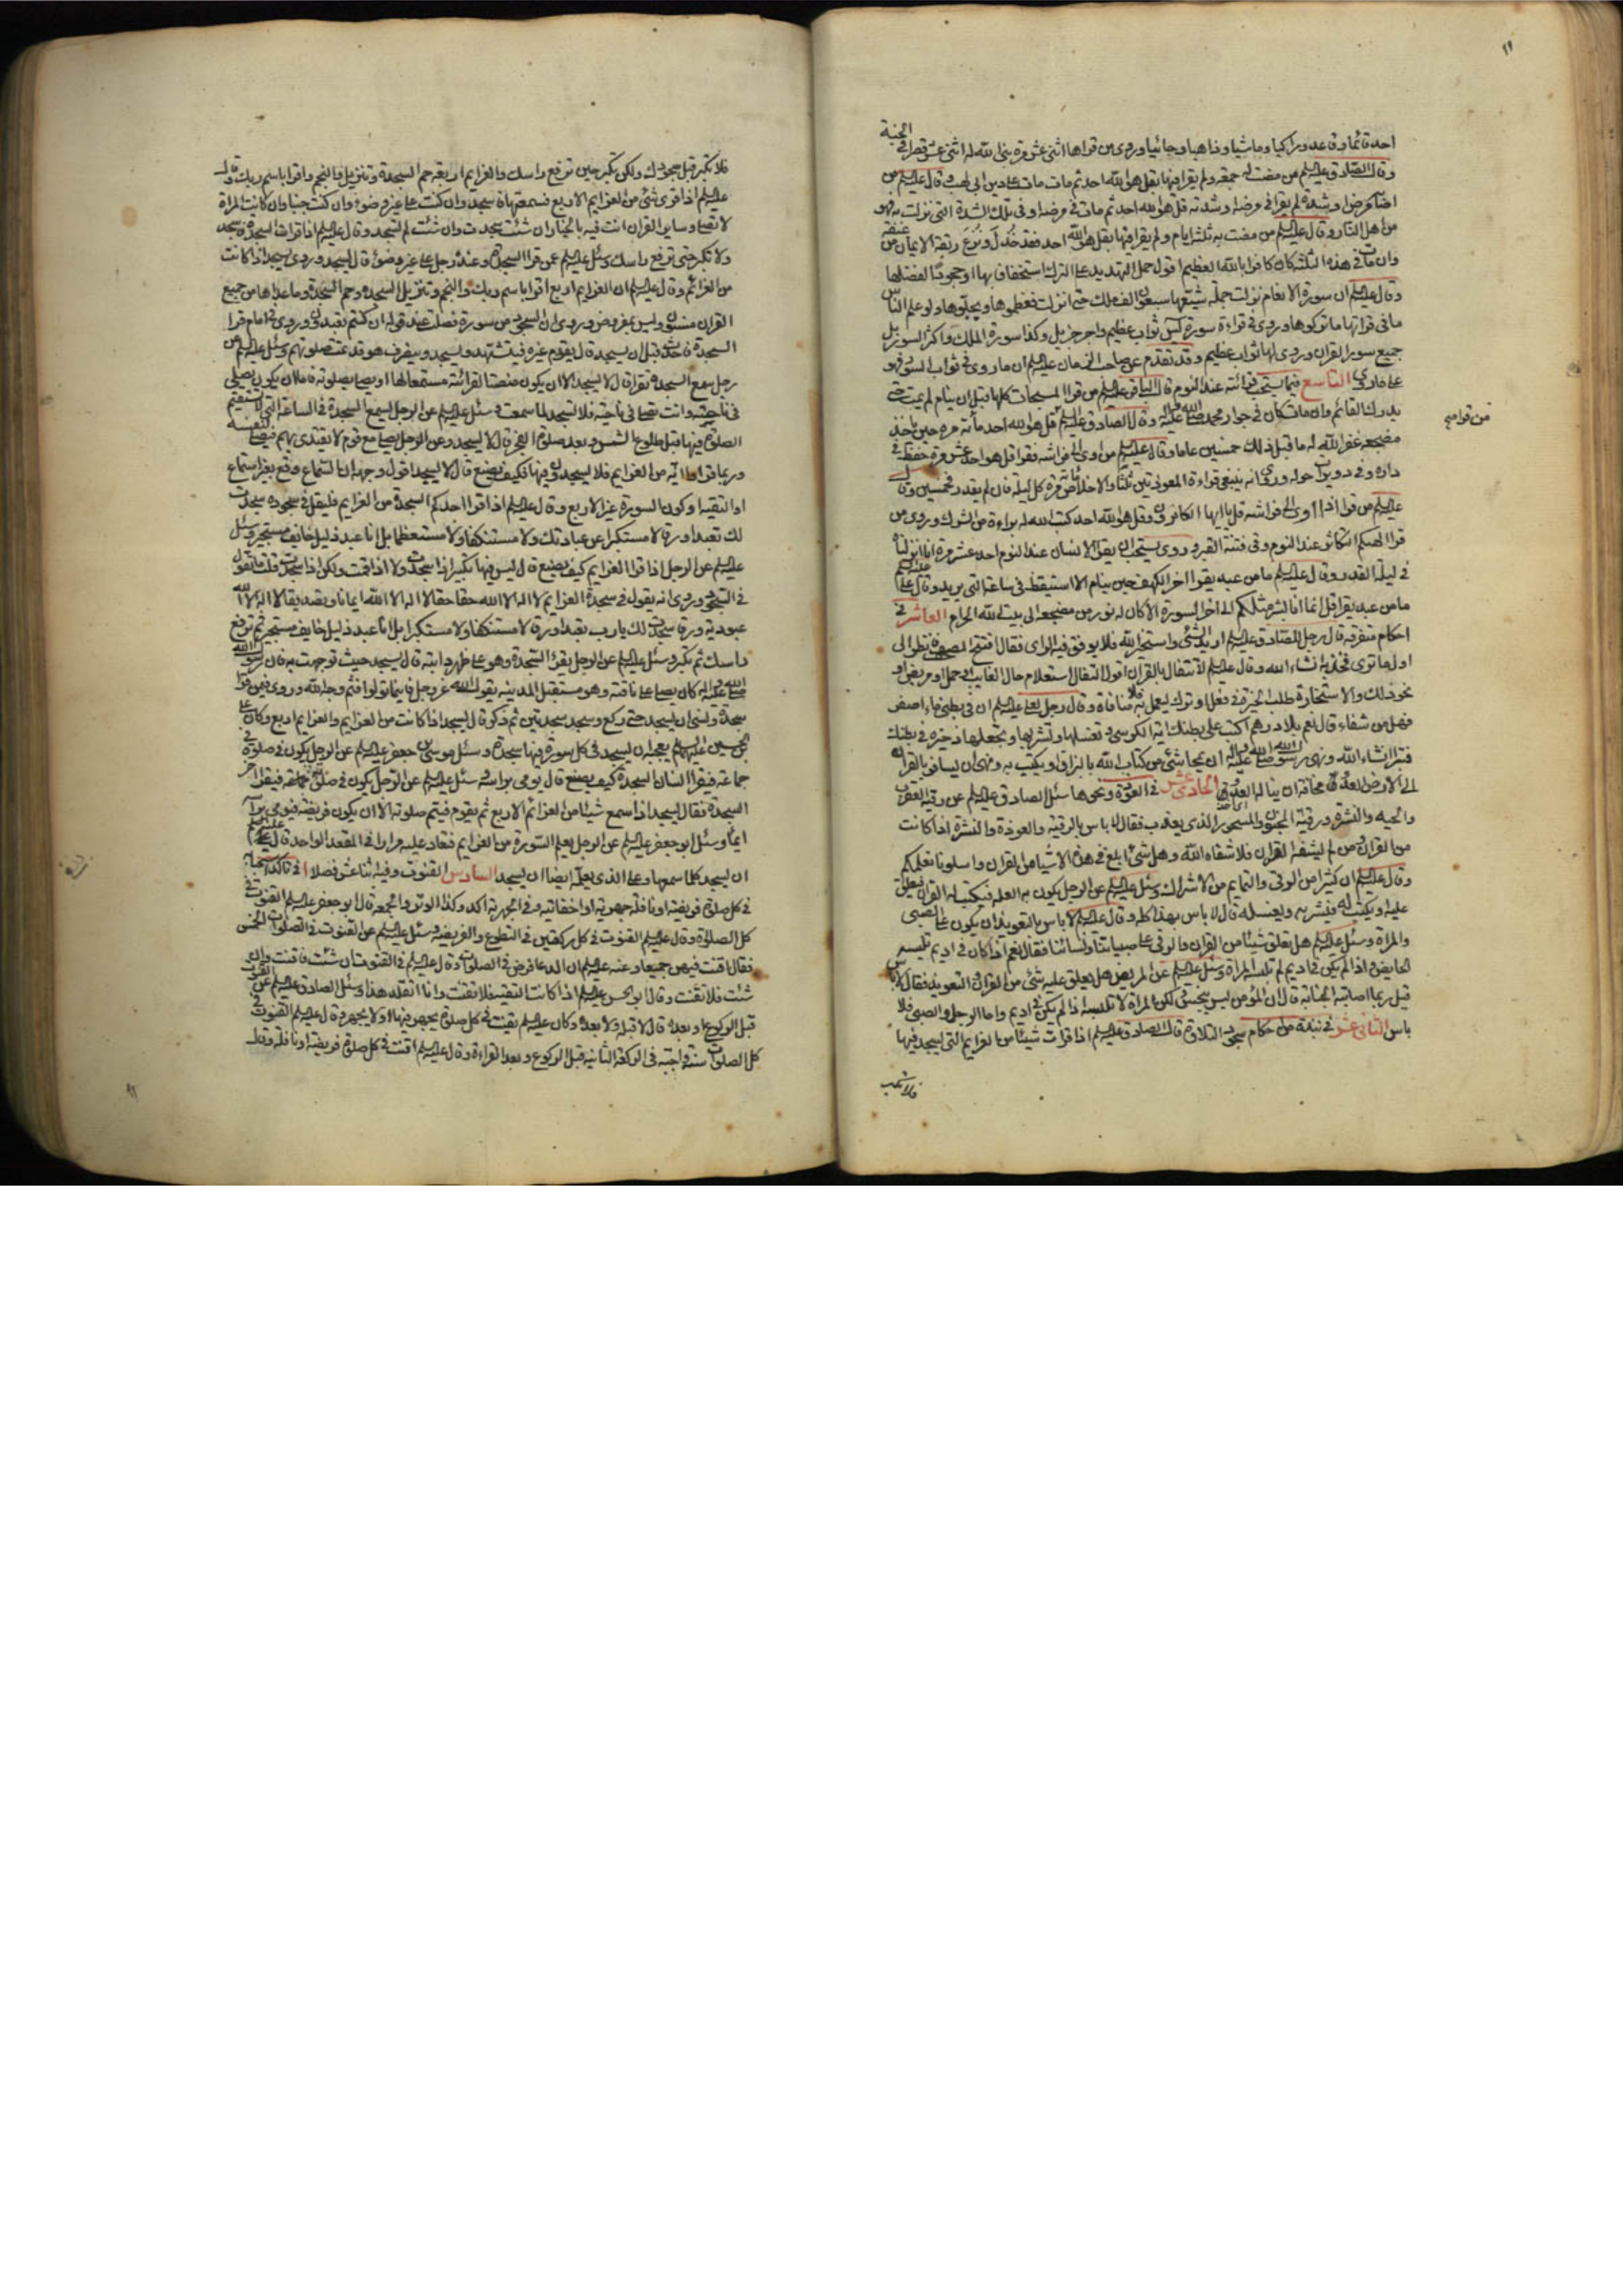 احد قائما وقاعدا وراكبا وماشيا وذاهبا وجائيا وروى من قراها اثنى عشر مرة بنى الله له اثنى عشر قصرا في الجنة
وقال الصادق عليه السلم من مضت له جمعة ولم يقرا فيها بقل هو الله احد ثم مات مات على دين ابى لهب وقال عليه السلم من
اصابه مرض او شدة لم يقرا في مرضه او شدته قل هو الله احد ثم مات في مرضه او في تلك الشدة التى نزلت به فهو
من اهل النار وقال عليه السلم من مضت به ثلثة ايام ولم يقرا فيها بقل هو الله احد فقد خذل ونزع ربقة الايمان من عنقه
وان مات في هذه الثلثة كان كافرا بالله العظيم اقول حمل التهديد على الترك استخفافا بها او جحودا لفضلها
وقال عليه السلم ان سورة الانعام نزلت جملة شيعها سبعون الف ملك حتى انزلت فعظموها وبجلوها ولو علم الناس
ما في قراتها ما تركوها وروى في قراءة سورة يس ثواب عظيم واجر جزيل وكذا سورة الملك واكثر السور بل
جميع سور القران وروى لها ثواب عظيم وقد تقدم عن صاحب الزمان عليه السلم ان ما روى في ثواب السور فهو
على ما روى التاسع فيما يستحب قرائته عند النوم قال الباقر عليه السلم من قرا المسبحات كلها قبل ان ينام لم يمت حتى
يدرك القائم وان مات كان في جوار محمد صلى الله عليه واله وقال الصادق عليه السلم من قرا قل هو الله احد مائة مرة حين ياخذ
مضجعه غفر الله له ما قبل ذلك خمسين عاما وقال عليه السلم من اوى الى فراشه فقرا قل هو الله احد عشر مرة حفظ في
داره وفي دويرات حوله وروى انه ينبغي قراءة المعوذتين ثلثا والاخلاص مائة مرة كل ليلة فان لم يقدر فخمسين وقال
عليه السلم من قرا اذا اوى الى فراشه قل يا ايها الكافرون وقل هو الله احد كتب الله له براءة من الشرك وروى من
قرا الهيكم التكاثر عند النوم وقى فتنة القبر وروى يستحب ان يقرا الانسان عند النوم احد عشر مرة انا انزلناه
في ليلة القدر وقال عليه السلم ما من عبد يقرا اخر الكهف حين ينام الا استيقظ في الساعة التى يريد وقال على عليه السلم
ما من عبد يقرا قل انما انا بشر مثلكم الى اخر السورة الا كان له نور من مضجعه الى بيت الله الحرام العاشر في
احكام متفرقة قال رجل للصادق عليه السلم اريد الشئ واستخير الله فلا يوفق فيه الراى فقال افتح المصحف فانظر الى
اول ما ترى فخذ به انشاء الله وقال عليه السلم لا تتفال بالقران اقول التفال استعلام حال الغايب او حمل او مريض او
نحو ذلك والاستخارة طلب الخيرة في فعل او ترك ليعمل به فلا منافاة وقال رجل لعلى عليه السلم ان في بطنى ماء اصفر
فهل من شفاء قال نعم بلا درهم اكتب على بطنك اية الكرسى وتغسلها وتشربها وتجعلها ذخيرة في بطنك
فتبرا انشاء الله ونهى رسول الله صلى الله عليه واله ان يمحا شئ من كتاب الله بالبزاق او يكتب به ونهى ان يسافر بالقران
الى الارض العدو مخافة ان يناله العدو الحادى عشر في العوذة ونحوها سئل الصادق عليه السلم عن رقية العقرب
والحية والنشرة ورقية المجنون والمسحور الذى يعذب فقال لا باس بالرقية والعوذة والنشرة اذا كانت
من القران ومن لم يشفه القران فلا شفاه الله وهل شئ ابلغ في هذه الاشيا من القران واسلونا نعلمكم
وقال عليه السلم ان كثيرا من الرقى والتمايم من الاشراك وسئل عليه السلم عن الرجل يكون به العلة فيكتب له القران فيعلق
عليه او يكتب له فيشربه ويغسله قال لا باس بهذا كله وقال عليه السلم لا باس بالتعويذ ان يكون على الصبى
والمراة وسئل عليه السلم هل نعلق شيئا من القران والرقى على صبياننا ونسائنا فقال نعم اذا كان في اديم تلبسه
الحايض واذا لم يكن في اديم لم تلبسه المراة وسئل عليه السلم عن المريض هل يعلق عليه شئ من القران والتعويذ فقال لا باس
قيل ربما اصابته الجنابة قال ان المؤمن ليس بنجس لكن المراة لا تلبسه اذا لم يكن في اديم واما الرجل والصبى فلا
باس الثانى عشر في نبذة من احكام سجود التلاوة قال الصادق عليه السلم اذا قرات شيئا من العزايم التى يسجد فيها
فلا تكبر
من قواهم
فلا تكبر قبل سجودك ولكن تكبر حين ترفع راسك والعزايم اربعة حم السجدة وتنزيل والنجم واقرا باسم ربك وقال
عليه السلم اذا قرى شئ من العزايم الاربع فسمعتها فاسجد وان كنت على غير وضوء وان كنت جنبا وان كانت المراة
لا تصلى وساير القران انت فيه بالخيار ان شئت سجدت وان شئت لم تسجد وقال عليه السلم اذا قرات السجدة فاسجد
ولا تكبر حتى ترفع راسك وسئل عليه السلم عمن قرا السجدة وعنده رجل على غير وضوء قال يسجد وروى يسجد اذا كانت
من العزائم وقال عليه السلم ان العزايم اربع اقرا باسم ربك والنجم وتنزيل السجدة وحم السجدة وما عداها من جميع
القران مسنون وليس بمفروض وروى ان السجود من سورة فصلت عند قوله ان كنتم اياه تعبدون وروى في امام قرا
السجدة فاحدث قبل ان يسجد قال يقدم غيره فيتشهد ويسجد وينصرف هو وقد تمت صلوتهم وسئل عليه السلم عن
رجل سمع السجدة تقرا قال لا يسجد الا ان يكون منصتا لقرائته مستمعا لها او يصلى بصلوته فاما ان يكون يصلى
في ناحية وانت تصلى في ناحية فلا تسجد لما سمعت وسئل عليه السلم عن الرجل يسمع السجدة في الساعة التى لا تستقيم
الصلوة فيها قبل طلوع الشمس وبعد صلوة الفجر قال لا يسجد وعن الرجل يصلى مع قوم لا يقتدى بهم فيصلى لنفسه
وربما قراوا اية من العزايم فلا يسجدون فيها فكيف يصنع قال لا يسجد اقول وجهه ان السماع وقع بغير استماع
او التقية او كون السورة غير الاربع وقال عليه السلم اذا قرا احدكم السجدة من العزايم فليقل في سجوده سجدت
لك تعبدا ورقا لا مستكبرا عن عبادتك ولا مستنكفا ولا مستعظما بل انا عبد ذليل خائف مستجير وسئل
عليه السلم عن الرجل اذا قرا العزايم كيف يصنع قال ليس فيها تكبير اذا سجدت ولا اذا قمت ولكن اذا سجدت قلت ما تقول
في السجود وروى انه يقول في سجدة العزايم لا اله الا الله حقا حقا لا اله الا الله ايمانا وتصديقا لا اله الا الله
عبودية ورقا سجدت لك يا رب تعبدا ورقا لا مستنكفا ولا مستكبرا بل انا عبد ذليل خايف مستجير ثم ترفع
راسك ثم تكبر وسئل عليه السلم عن الرجل يقرا السجدة وهو على ظهر دابته قال يسجد حيث توجهت به فان رسول الله
صلى الله عليه واله كان يصلى على ناقته وهو مستقبل المدينة يقول الله عز وجل فاينما تولوا فثم وجه الله وروى فيمن قرا
سجدة ونسى ان يسجد حتى ركع وسجد سجدتين ثم ذكر قال يسجد اذا كانت من العزايم والعزايم اربع وكان على
بن الحسين عليهما السلم يعجبه ان يسجد في كل سورة فيها سجدة وسئل موسى بن جعفر عليه السلم عن الرجل يكون في صلوة في
جماعة فيقرا انسان السجدة كيف يصنع قال يومى براسه وسئل عليه السلم عن الرجل يكون في صلوة جماعة فيقرا اخر
السجدة فقال يسجد اذا سمع شيئا من العزائم الاربع ثم يقوم فيتم صلوته الا ان يكون في فريضة فيومى براسه
ايماء وسئل ابو جعفر عليه السلم عن الرجل يعلم السورة من العزايم فتعاد عليه مرارا في المقعد الواحد قال عليه السلم عليه
ان يسجد كلما سمعها وعلى الذى يعلمه ايضا ان يسجد السادس القنوت وفيه اثنا عشر فصلا ا في تاكد استحبابه
في كل صلوة فريضة او نافلة جهرية او اخفاتية وفي الجهرية اكد وكذا الوتر والجمعة قال ابو جعفر عليه السلم القنوت في
كل الصلوة وقال عليه السلم القنوت في كل ركعتين في التطوع والفريضة وسئل عليه السلم عن القنوت في الصلوات الخمس
فقال اقنت فيهن جميعا وعنه عليه السلم ان الدعا فرض في الصلوات وقال عليه السلم في القنوت ان شئت فاقنت وان
شئت فلا تقنت وقال ابو الحسن عليه السلم اذا كانت التقية فلا تقنت وانا اتقلد هذا وسئل الصادق عليه السلم عن القنوت
قبل الركوع او بعده قال لا قبله ولا بعده وكان عليه السلم يقنت في كل صلوة يجهر فيها او لا يجهر وقال عليه السلم القنوت في
كل الصلوات سنة واجبة في الركعة الثانية قبل الركوع وبعد القراءة وقال عليه السلم اقنت في كل صلوة فريضة او نافلة وقال